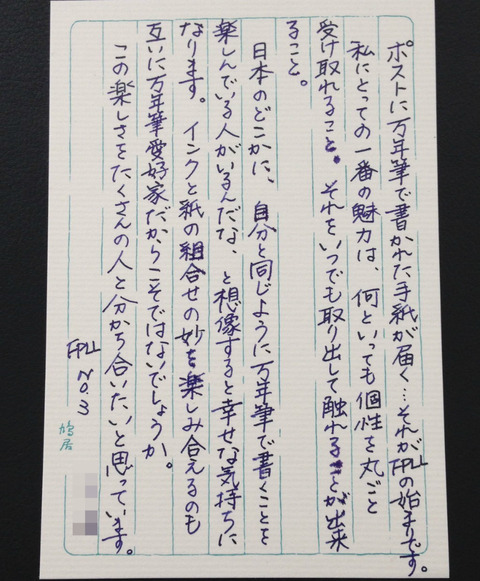 ポストに万年筆で書かれた手紙が届く…それがFPLLの始まりです。
私にとっての一番の魅力は、何といっても個性を丸ごと
受け取れること。それをいつでも取り出して触れることが出来
ること。
日本のどこかに、自分と同じように万年筆で書くことを
楽しんでいる人がいるんだな、と想像すると幸せな気持ちに
なります。インクと紙の組合せの妙を楽しみ合えるのも
互いに万年筆愛好家だからこそではないでしょうか。
この楽しさをたくさんの人と分かち合いたいと思っています。
FPLL No.3
鳩居